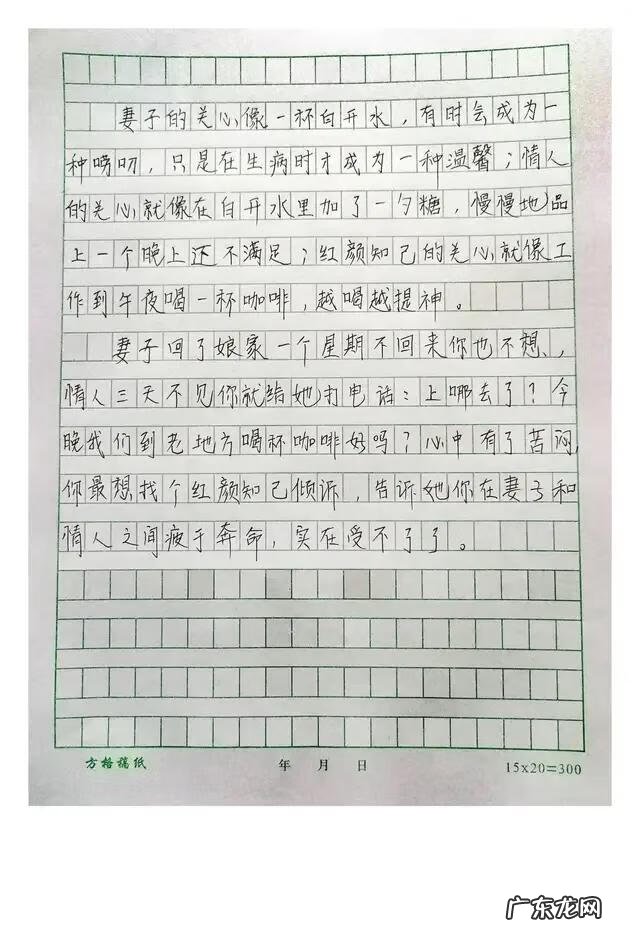 妻子的关心像一杯白开水，有时会成为一
种唠叨，只是在生病时才成为一种温馨；情人
的关心就像在白开水里加了一勺糖，慢慢地品
上一个晚上还不满足；红颜知己的关心就像工
作到午夜喝一杯咖啡，越喝越提神。
妻子回了娘家一个星期不回来你也不想，
情人三天不见你就给她打电话：上哪去了？今
晚我们到老地方喝杯咖啡好吗？心中有了苦闷，
你最想找个红颜知己倾诉，告诉她你在妻子和
情人之间疲于奔命，实在受不了了。
方格稿纸 年 月 日 15x20=300
广东龙网